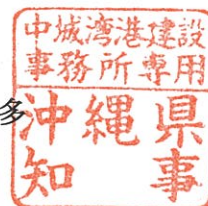 中城湾港建設
事務所専用
沖縄県
知事
多